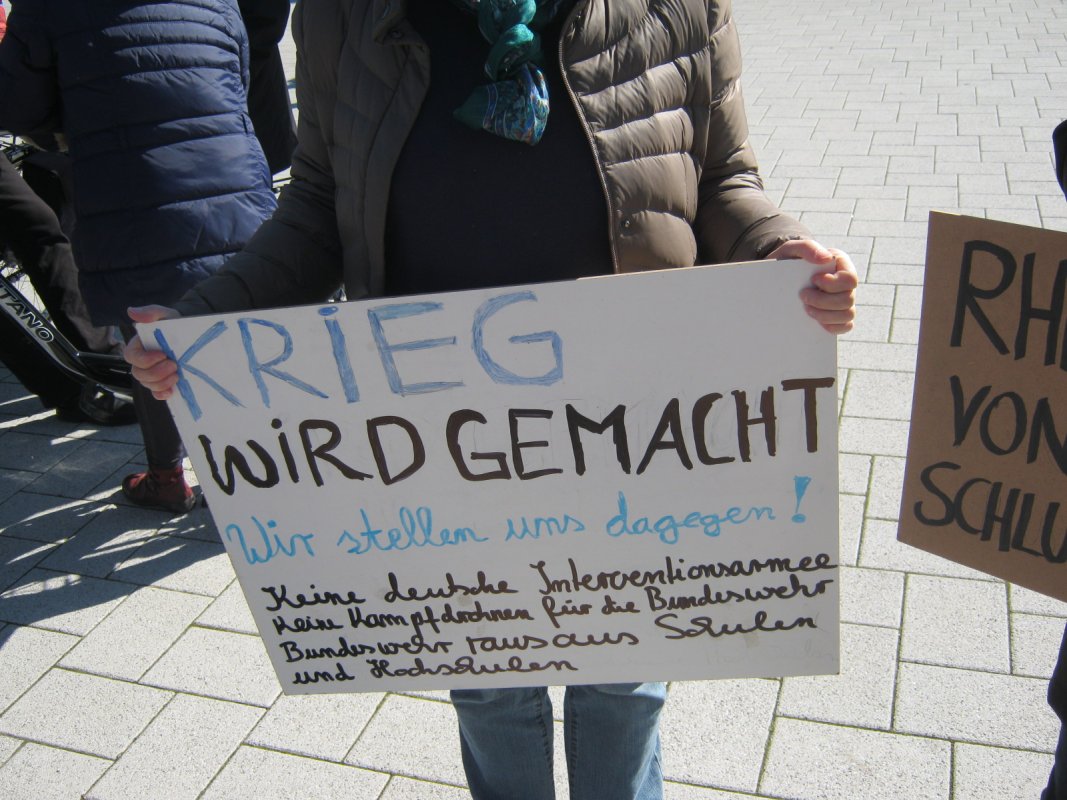 KRIEG
WIRD GEMACHT
Wir stellen uns dagegen!
Keine deutsche Interventionsarmee
Keine Kampfdrohnen für die Bundeswehr
Bundeswehr raus aus Schulen
und Hochschulen
RH
VON
SCHLU
TANO